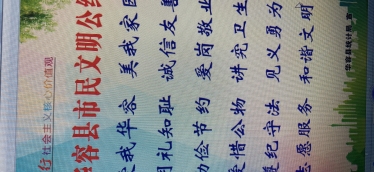 行社会主义核心价值观
容县市民文明公约
爱我华容 美我家园
明礼知耻 诚信友善
勤俭节约 爱岗敬业
爱惜公物 讲究卫生
遵纪守法 见义勇为
志愿服务 和谐文明
华容县统计局 宣